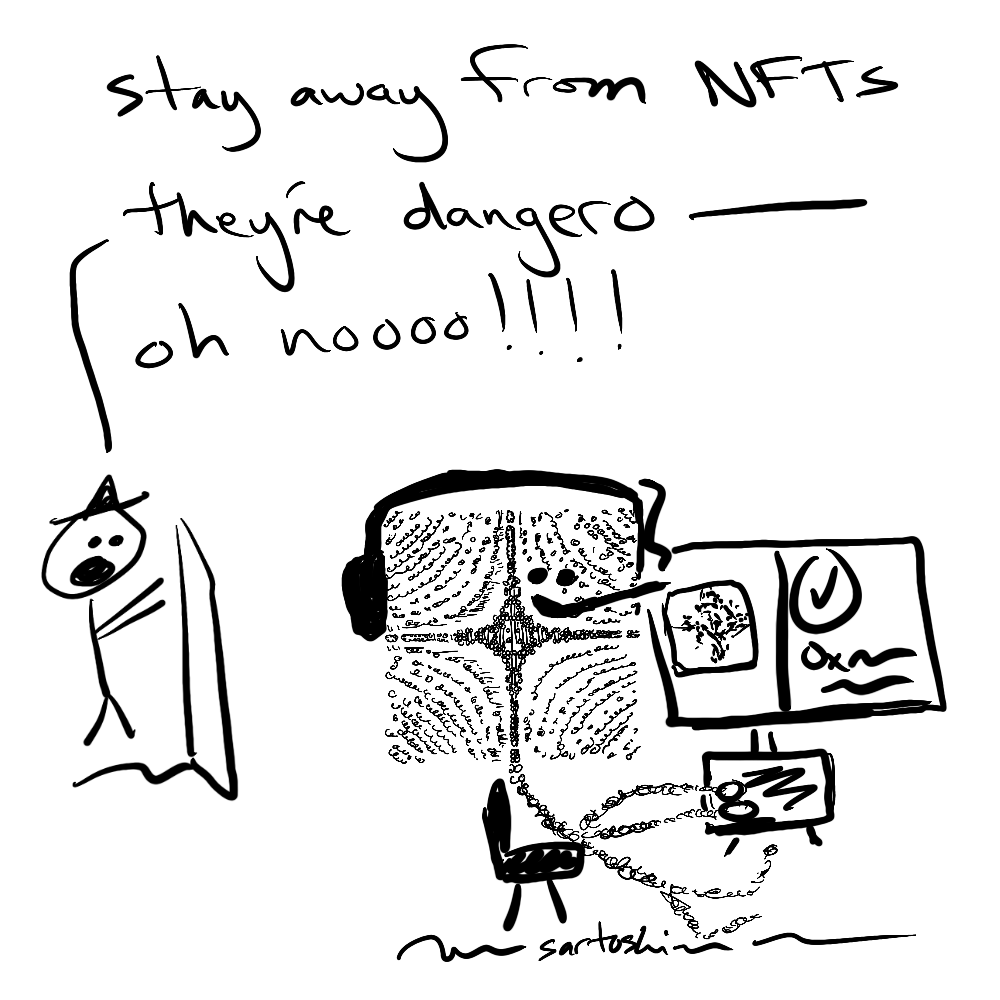 stay away from NFTs
they're dangero —
oh noooo!!!!
0x
sartoshi